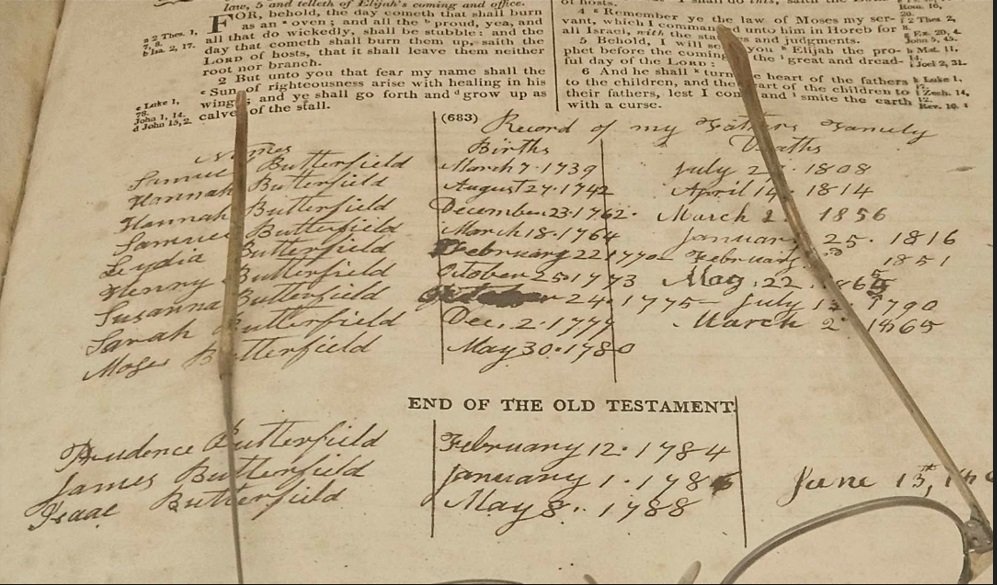 law, 5 and telleth of Elijah's coming and office.
FOR, behold, the day cometh that shall burn
as an ᵃ oven; and all the ᵇ proud, yea, and
all that do wickedly, shall be stubble: and the
day that cometh shall burn them up, saith the
LORD of hosts, that it shall leave them neither
root nor branch.
2 But unto you that fear my name shall the
ᶜ Sun of righteousness arise with healing in his
wings; and ye shall go forth and ᵈ grow up as
calves of the stall.
a 2 Thes. 1,
7, 8.
b Hab. 2, 17.
c Luke 1,
78.
John 1, 14.
d John 15, 2.
of hosts.
4 Remember ye the law of Moses my ser-
vant, which I commanded unto him in Horeb for
all Israel, with the and judgments.
5 Behold, I will you Elijah the pro-
phet before the coming ᶦ great and dread-
ful day of the LORD:
6 And he shall ᵏ turn heart of the fathers
to the children, and the heart of the children to
their fathers, lest I come and ˡ smite the earth
with a curse.
f 2 Thes. 2,
g Ex. 20,
h Mat. 11,
14.
i Joel 2, 31.
k Luke 1,
l Zech. 14,
12.
(683)
Record of my Fathers Famely
Names Births Deaths
Samuel Butterfield March 7. 1739 July 1808
Hannah Butterfield August 27. 1742 April 14. 1814
Hannah Butterfield December. 23. 1762. March 2. 1856
Samuel Butterfield March 18. 1764 January 25. 1816
Lydia Butterfield February 22 1770 February 1851
Henny Butterfield October 25. 1773 May. 22. 1865
Susanna Butterfield 24. 1775 July 13. 1790
Sarah Butterfield Dec. 2. 1779 March 2. 1865
Moses Butterfield May 30. 1780
END OF THE OLD TESTAMENT.
Prudence Butterfield February 12. 1784
James Butterfield January 1. June 15,
Isaac Butterfield May 8. 1788